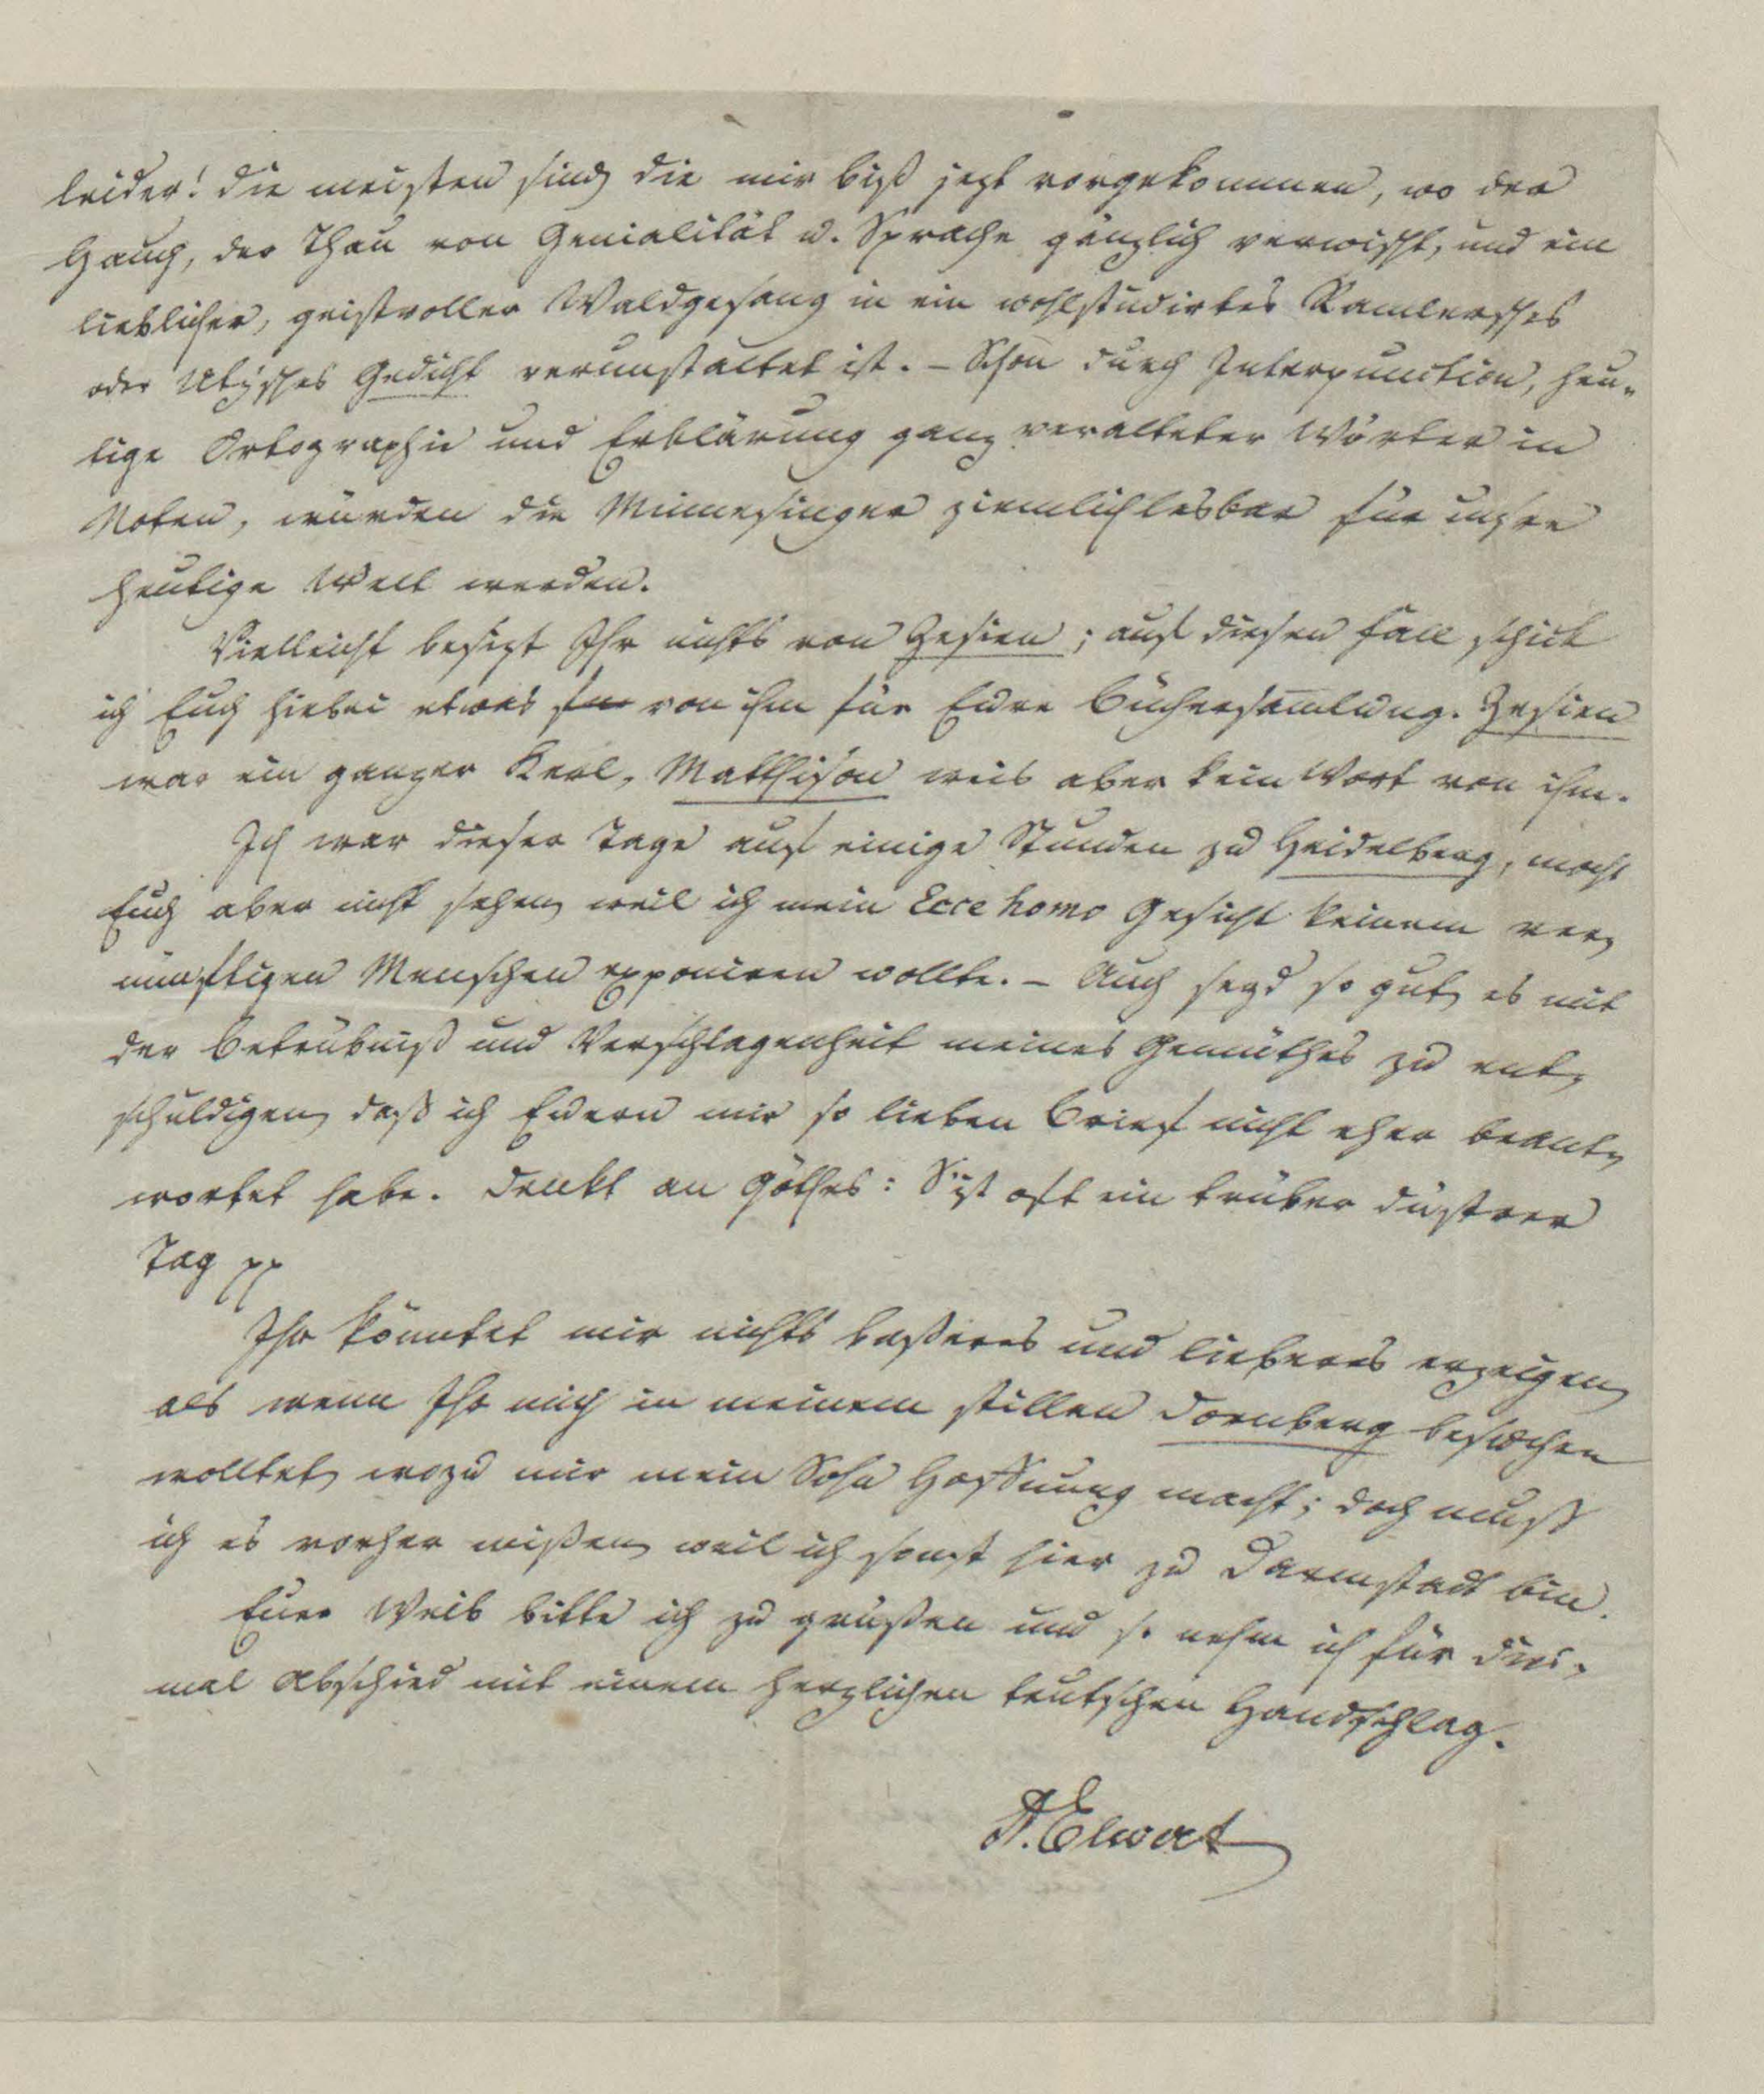 leider! die meisten sind, die mir biß jezt vorgekommen, wo der
Hauch, der Thau von Genialität u. Sprache gänzlich verwischt, und ein
lieblicher, geistvoller Waldgesang in ein wohlstudirtes Ramlersches
oder Utzisches Gedicht verunstaltet ist. – Schon durch Interpunction, heu-
tige Ortographie und Erklärung ganz veralteter Wörter in
Noten, würden die Minnesinger ziemlich lesbar für unsre
heutige Welt werden.
Vielleicht besizt Ihr nichts von Zesien; auf diesen Fall schick
ich Euch hiebei etwas von ihm für Eure Büchersamlung. Zesien
war ein ganzer Kerl, Matthison weis aber kein Wort von ihm.
Ich war dieser Tage auf einige Stunden zu Heidelberg, mocht
Euch aber nicht sehen, weil ich mein Ecce homo Gesicht keinem ver-
nünftigen Menschen exponiren wollte. – Auch seyd so gut, es mit
der Betrübniß und Verschlagenheit meines Gemüthes zu ent-
schuldigen, daß ich Euern mir so lieben Brief nicht eher beant-
wortet habe. Denkt an Göthes: S'ist oft ein trüber düstrer
Tag pp
Ihr könntet mir nichts beßeres und lieberes erzeigen,
als wenn Ihr mich in meinem stillen Dornberg besuchen
wolltet, wozu mir mein Sohn Hoffnung macht; doch muß
ich es vorher wißen, weil ich sonst hier zu Darmstadt bin.
Euer Weib bitte ich zu grüßen und so nehm ich für dies-
mal Abschied mit einem herzlichen teutschen Handschlag.
A. Elwert